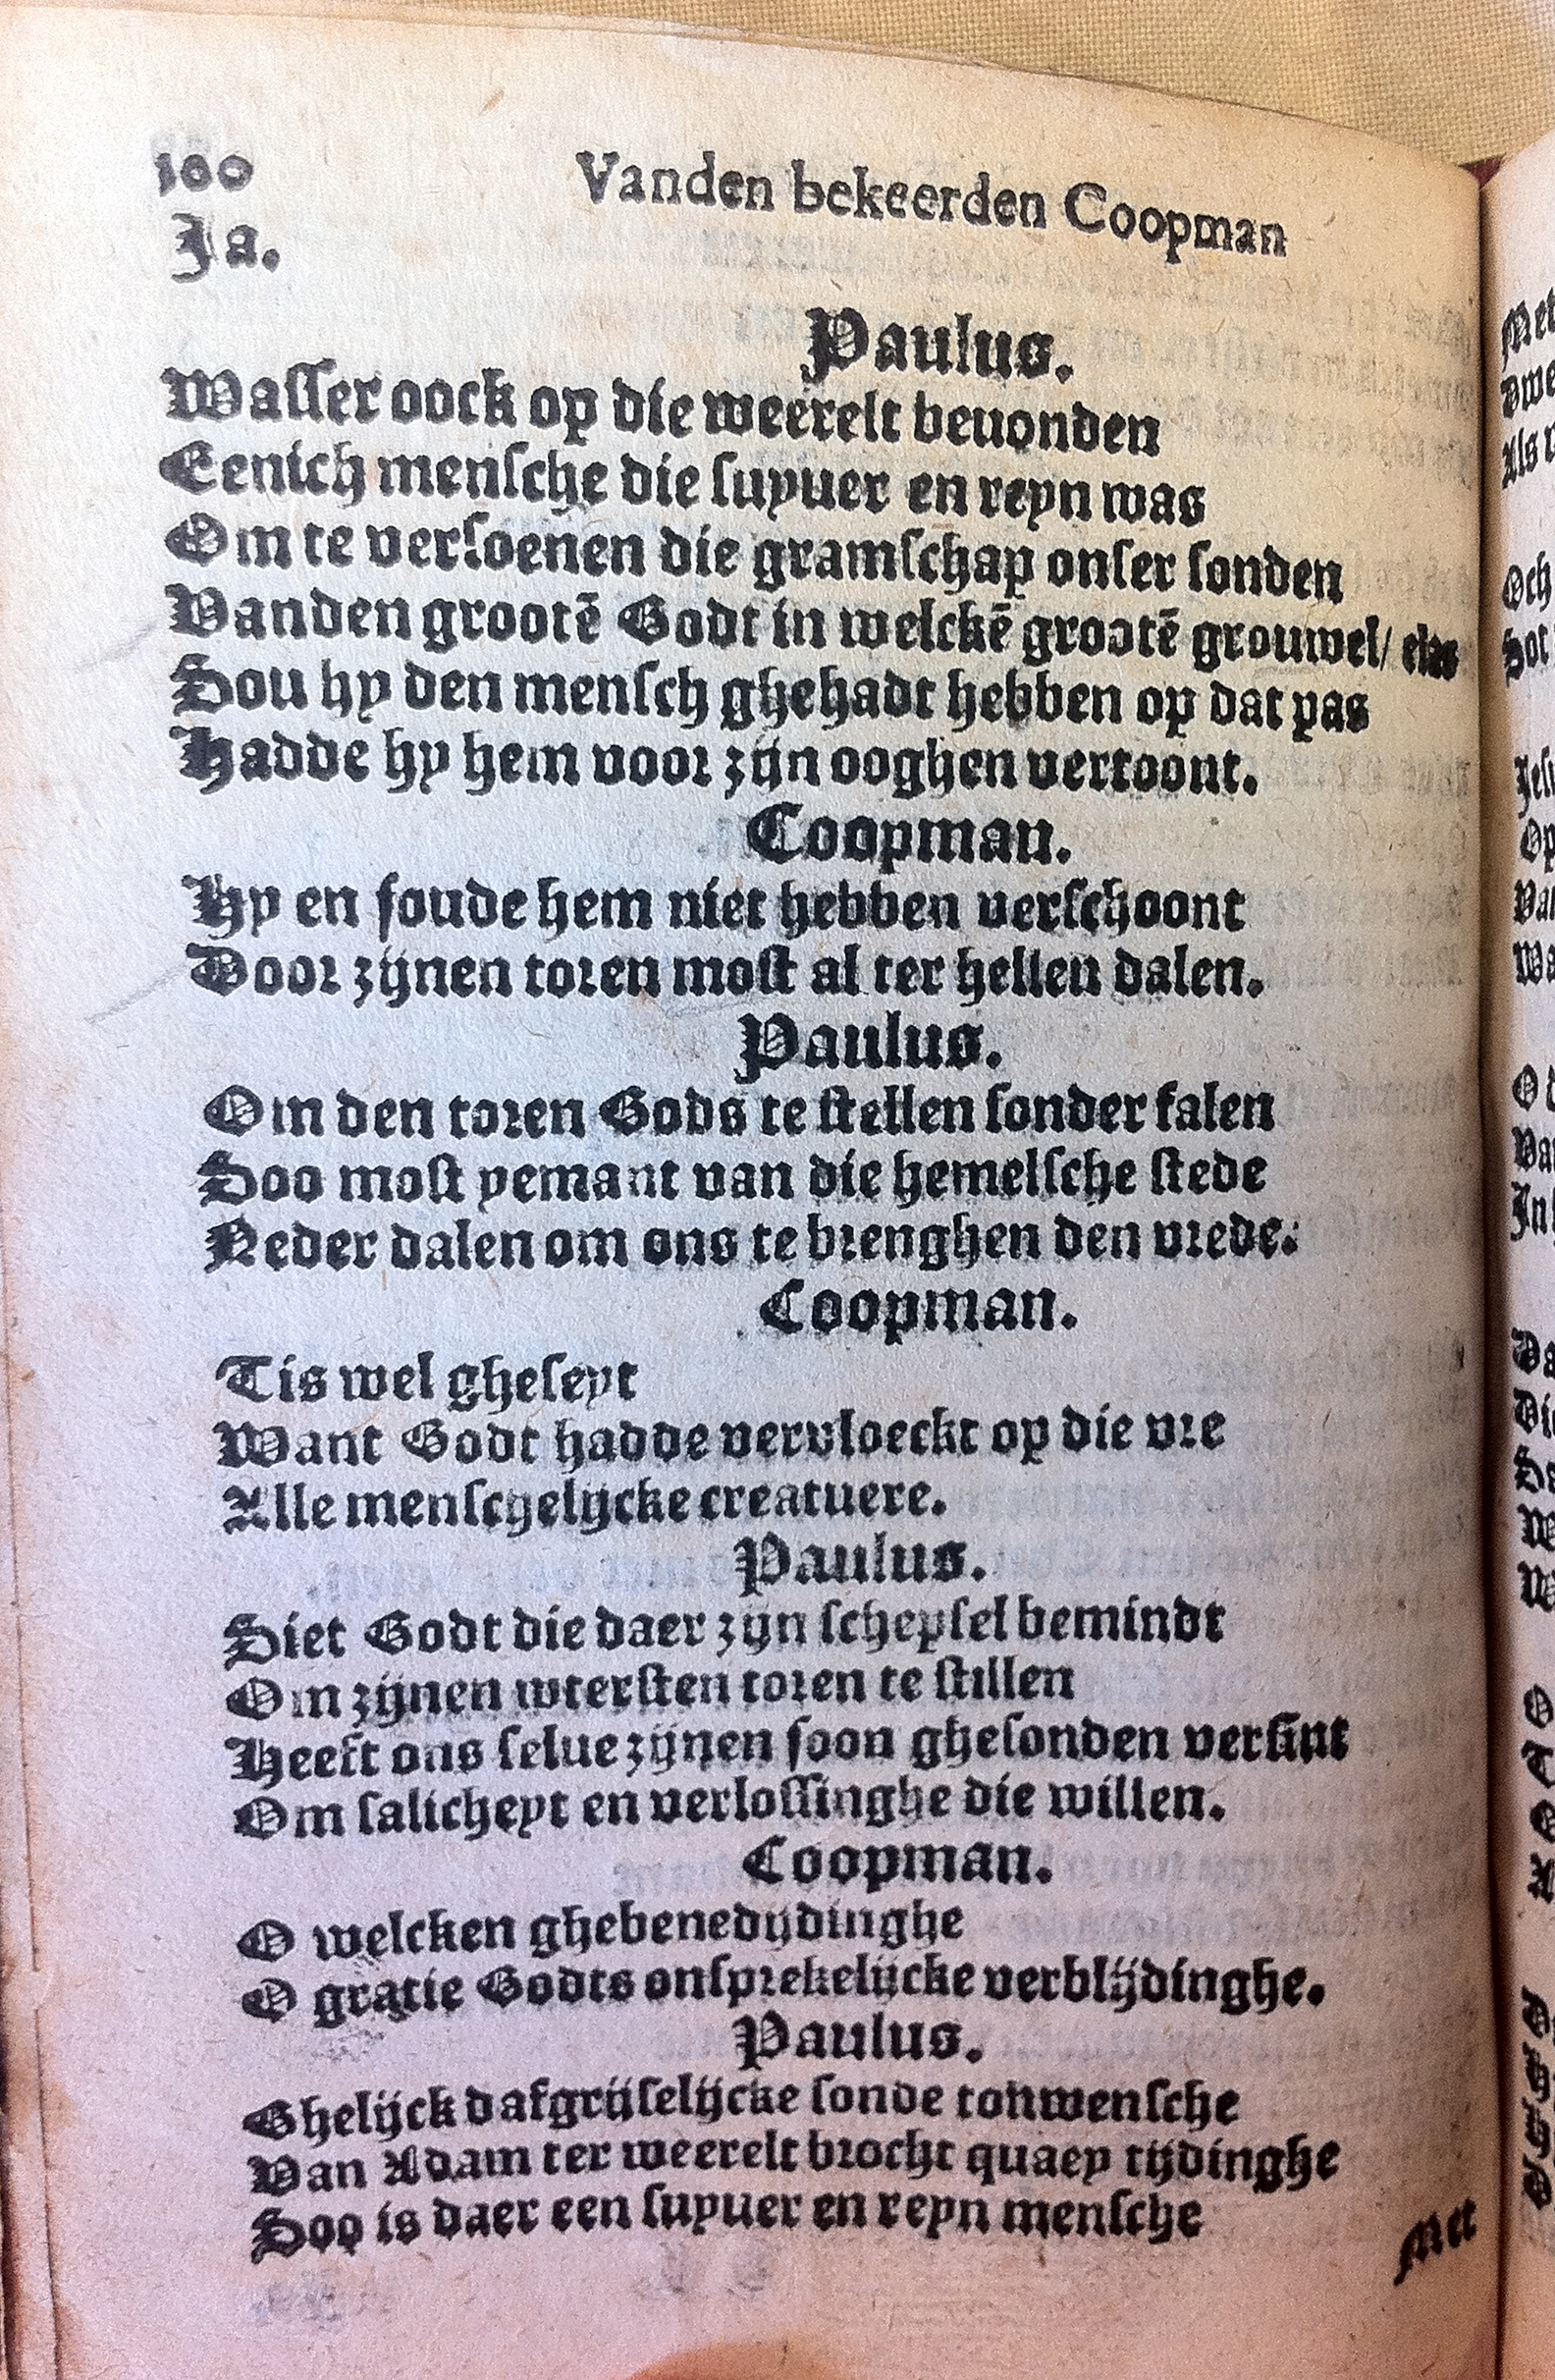 160
Vanden bekeerden Coopman
Ja.
Paulus.
Wasser oock op die weerelt beuonden
Eenich mensche die suyuer en reyn was
Om te versoenen die gramschap onser sonden
Vanden grootē Godt in welckē grootē grouwel/ elas
Sou hy den mensch ghehadt hebben op dat pas
Hadde hy hem voor zijn ooghen vertoont.
Coopman.
Hy en soude hem niet hebben verschoont
Door zijnen toren most al ter hellen dalen.
Paulus.
Om den toren Gods te stellen sonder falen
Soo most yemant van die hemelsche stede
Neder dalen om ons te brenghen den vrede.
Coopman.
Tis wel gheseyt
Want Godt hadde vervloeckt op die vre
Alle menschelijcke creatuere.
Paulus.
Siet Godt die daer zijn schepsel bemindt
Om zijnen wtersten toren te stillen
Heeft ons selue zijnen soon ghesonden versint
Om salicheyt en verlossinghe die willen.
Coopman.
O welcken ghebenedijdinghe
O gratie Godts onsprekelijcke verblijdinghe.
Paulus.
Ghelijck dafgrijselijcke sonde tonwensche
Van Adam ter weerelt brocht quaey tijdinghe
Soo is daer een suyuer en reyn mensche
Met